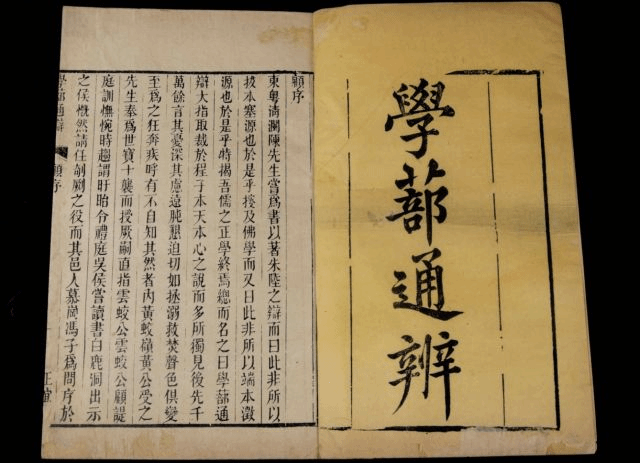 學蔀通辨
顧序
東粤清瀾陳先生嘗爲書以著朱陸之辯而曰此非所以
拔本塞源也於是乎搜及佛學而又曰此非所以端本澂
源也於是乎特揭吾儒之正學終焉總而名之曰學蔀通
辯大指取裁於程子本天本心之說而多所獨見後先千
萬餘言其憂深其慮遠肫懇迫切如拯溺救焚聲色俱變
至爲之狂奔疾呼有不自知其然者內黃蛟嶺黃公受之
先生奉爲世寶十襲而授厥嗣直指雲蛟公雲蛟公顧諟
庭訓憮惋時趨謂盱眙令禮庭吳侯嘗讀書白鹿洞出示
之侯慨然請任剞劂之役而其邑人慕崗馮子爲問序於
學蔀通辯 顧序